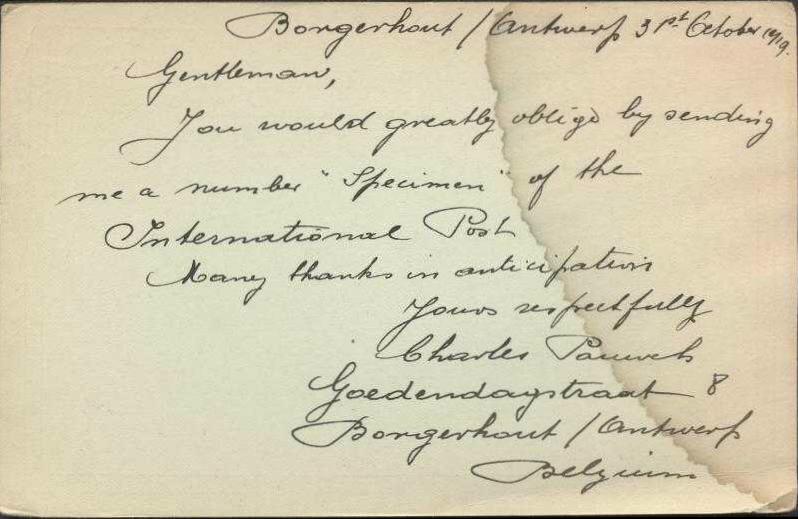 Borgerhout / Antwerp 31st October 1919.
Gentleman,
You would greatly oblige by sending
me a number "Specimen" of the
International Post
Many thanks in anticipation
Yours respectfully
Charles Pauwels
Goedendagstraat 8
Borgerhout / Antwerp
Belgium